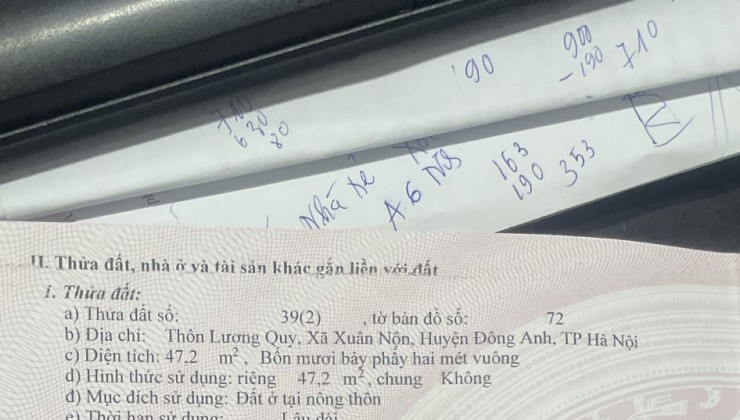 190
900
-190
710
710
630
80
Nhà xe
A6 N8
163
190
353
II. Thửa đất, nhà ở và tài sản khác gắn liền với đất
1. Thửa đất:
a) Thửa đất số: 39(2) , tờ bản đồ số: 72
b) Địa chỉ: Thôn Lương Quy, Xã Xuân Nộn, Huyện Đông Anh, TP Hà Nội
c) Diện tích: 47,2 m², Bốn mươi bảy phẩy hai mét vuông
d) Hình thức sử dụng: riêng 47,2 m², chung Không
đ) Mục đích sử dụng: Đất ở tại nông thôn
e) Thời hạn sử dụng: Lâu dài